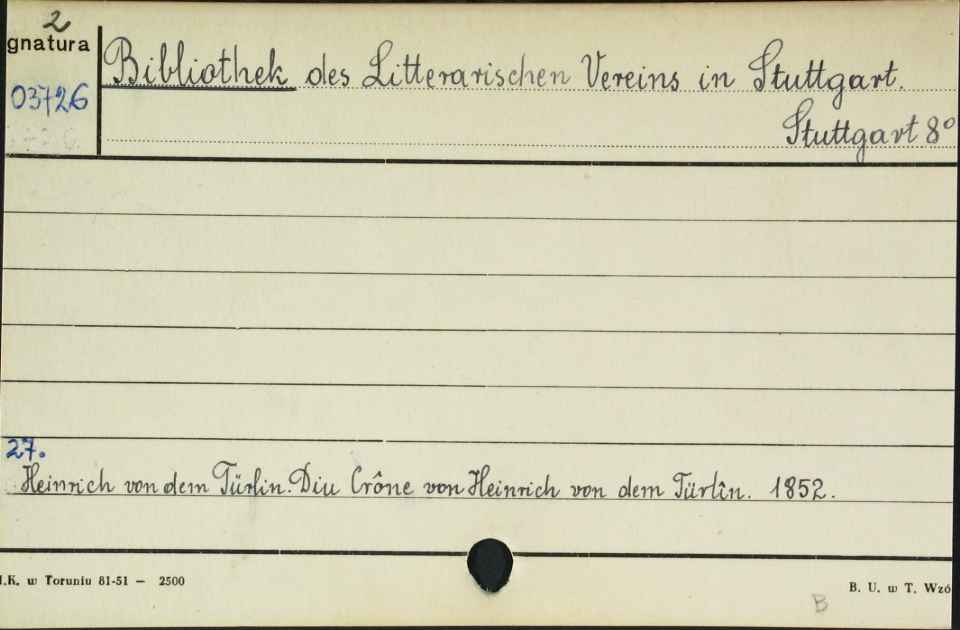 2
gnatura
Bibliothek des Litterarischen Vereins in Stuttgart.
03726
Stuttgart 8°
27.
Heinrich von dem Türlin. Diu Crône von Heinrich von dem Türlîn. 1852.
I.K. w Toruniu 81-51 — 2500
B. U. w T. Wzó
B